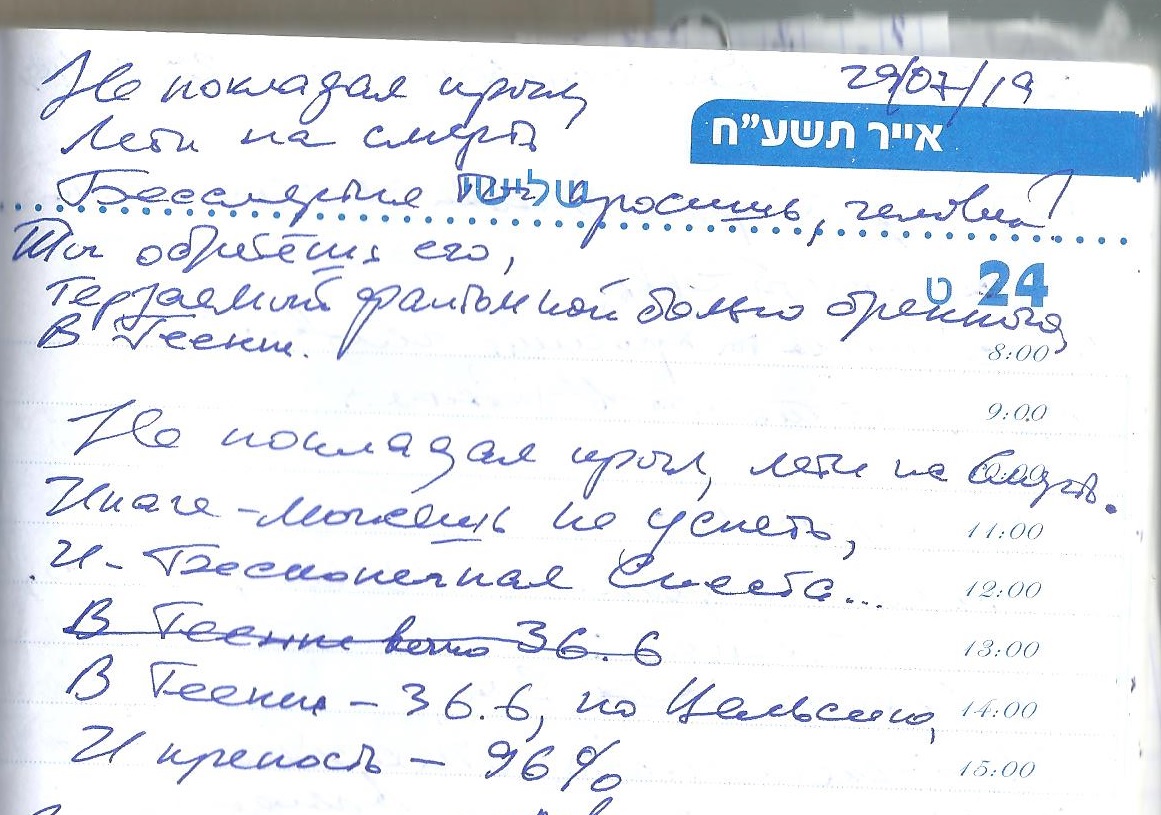 29/07/19
אייר תשע״ח
Не покладая крыл,
Лети на смерть
שלישי
Бессмертия ты просишь, человек!
Ты обретёшь его,
24 ט
Терзаемый фантомной болью бренного
В Геенне.
8:00
9:00
Не покладая крыл, лети на смерть.
10:00
Иначе – можешь не успеть,
11:00
И – Бесконечная Сиеста...
12:00
В Геенне вечно 36.6
13:00
В Геенне – 36.6, по Цельсию,
14:00
И крепость – 96%
15:00